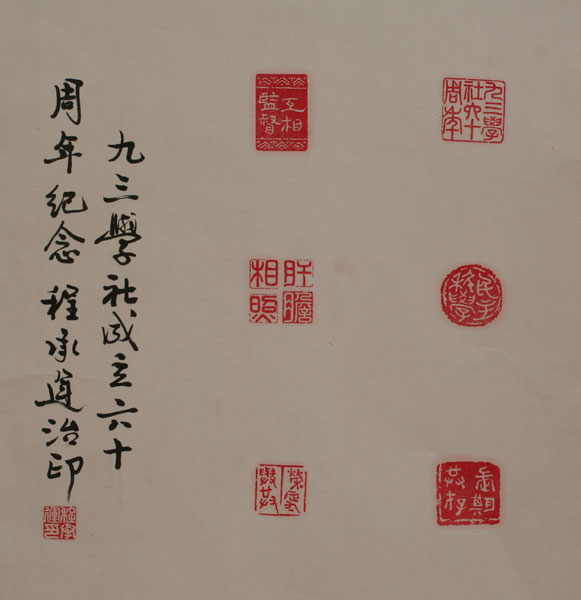 九三學
社六十
周年
民主
科學
長期
共存
互相
監督
肝膽
相照
榮辱
與共
九三學社成立六十
周年紀念 程承道治印